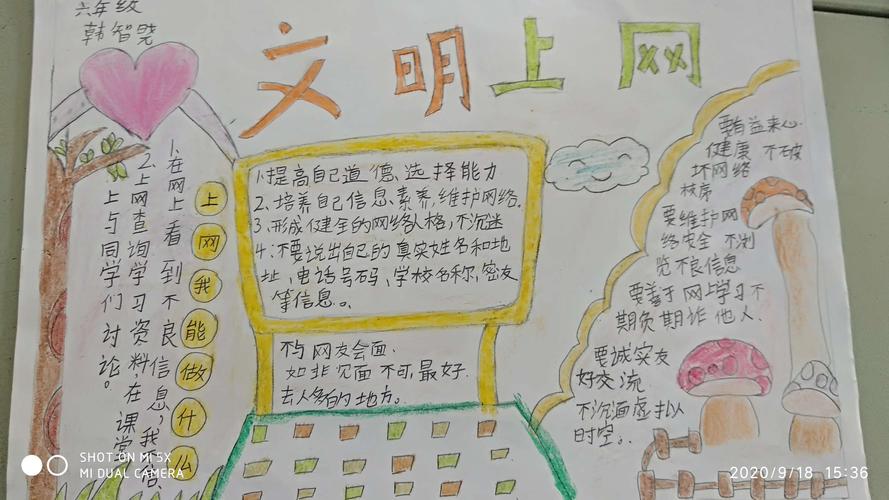 六年级
韩智晓
文明上网
1.在网上看到不良信息,我会
2.上网查询学习资料,在课堂
上与同学们讨论。
上网我能做什么
1.提高自己道德选择能力
2、培养自己信息素养,维护网络.
3、形成健全的网络人格,不沉迷
4:不要说出自己的真实姓名和地
址,电话号码,学校名称,密友
等信息。
不与网友会面.
如非见面不可,最好.
去人多的地方。
要有益来心.
健康 不破
坏网络
秩序
要维护网
络安全 不浏
览不良信息
要善于网上学习不
期负期诈他人.
要诚实友
好交流
不沉湎虚拟
时空。
SHOT ON MI 5X
MI DUAL CAMERA
2020/9/18 15:36